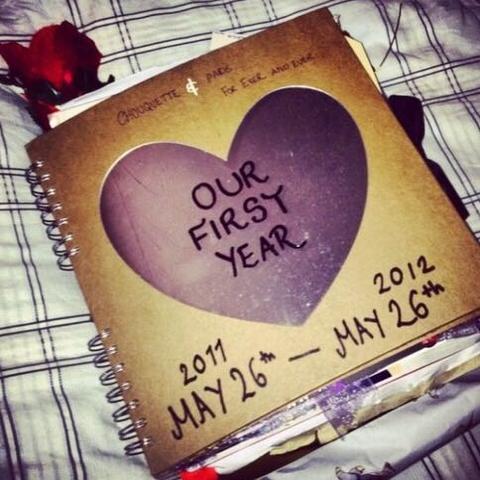 CHOUQUETTE & PABE
FOR EVER AND EVER
OUR
FIRST
YEAR
2011
MAY 26th — MAY 26th
2012